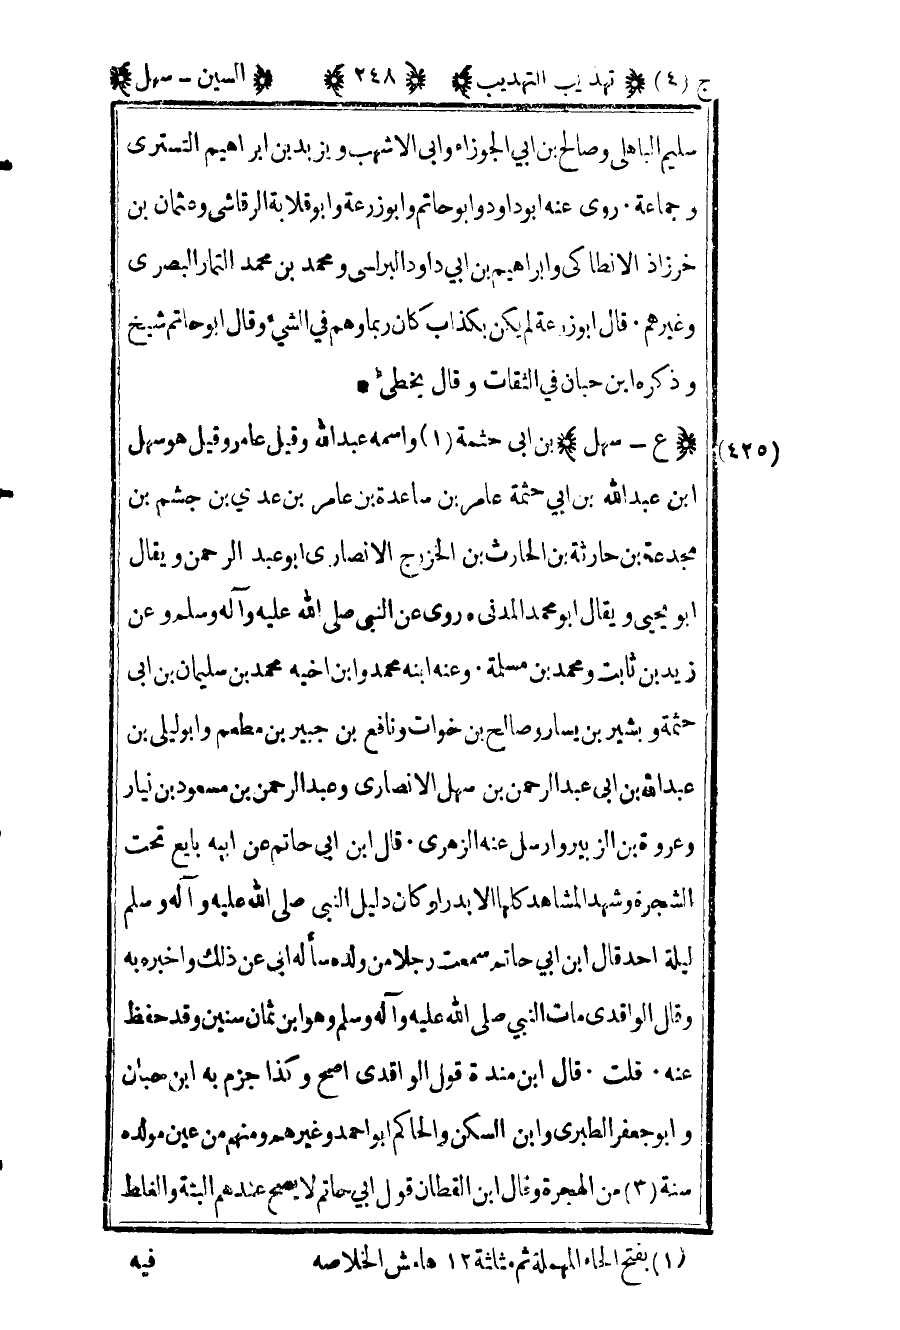 ج (٤) تهذيب التهذيب ٢٤٨ السين – سهل
سليم الباهلى وصالح بن ابي الجوزاء وابى الاشهب ويزيد بن ابراهيم التسترى
و جماعة · روى عنه ابو داود وابو حاتم وابو زرعة وابو قلابة الرقاشى وعثمان بن
خرزاذ الانطاكى وابراهيم بن ابي داود البراسى ومحمد بن محمد التمار البصرى
وغيرهم · قال ابو زرعة لم يكن بكذاب كان ربما وهم في الشئ وقال ابو حاتم شيخ
و ذكره ابن حبان في الثقات و قال يخطئ •
(٤٢٥) ع – سهل بن ابى حثمة (١) واسمه عبد الله وقيل عامر وقيل هو سهل
ابن عبد الله بن ابي حثمة عامر بن ساعدة بن عامر بن عدي بن جشم بن
مجدعة بن حارثة بن الحارث بن الخزرج الانصارى ابو عبد الرحمن و يقال
ابو يحيى و يقال ابو محمد المدنى · روى عن النبي صلى الله عليه وآله وسلم و عن
زيد بن ثابت ومحمد بن مسلمة · وعنه ابنه محمد وابن اخيه محمد بن سليمان بن ابى
حثمة و بشير بن يسار وصالح بن خوات ونافع بن جبير بن مطعم وابو ليلى بن
عبد الله بن ابى عبد الرحمن بن سهل الانصارى وعبد الرحمن بن مسعود بن نيار
وعروة بن الزبير وارسل عنه الزهرى · قال ابن ابي حاتم عن ابيه بايع تحت
الشجرة وشهد المشاهد كلها الا بدرا وكان دليل النبي صلى الله عليه وآله وسلم
ليلة احد قال ابن ابي حاتم سمعت رجلا من ولده سأله ابى عن ذلك واخبره به
وقال الواقدى مات النبي صلى الله عليه وآله وسلم وهو ابن ثمان سنين وقد حفظ
عنه · قلت · قال ابن مندة قول الواقدى اصح وكذا جزم به ابن حبان
و ابو جعفر الطبرى وابن السكن والحاكم ابو احمد وغيرهم ومنهم من عين مولده
سنة (٣) من الهجرة وقال ابن القطان قول ابي حاتم لا يصح عندهم البتة والغلط
(١) بفتح الحاء المهملة ثم مثلثة ١٢ هامش الخلاصه فيه